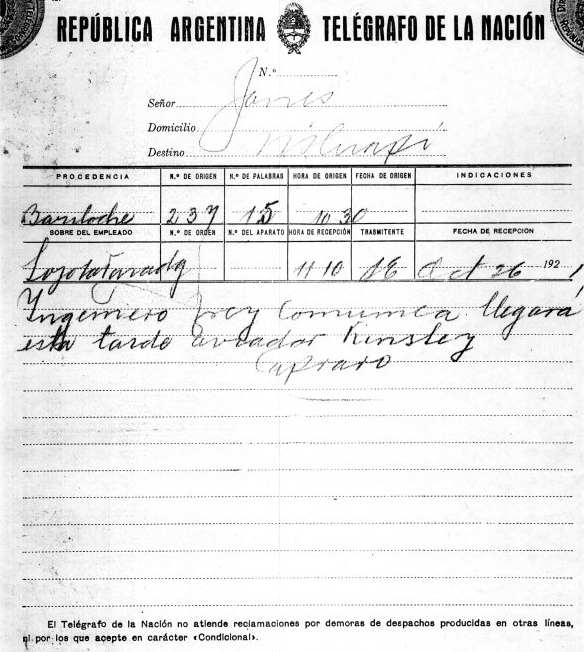 REPÚBLICA ARGENTINA TELÉGRAFO DE LA NACIÓN
N.º
Señor Jones
Domicilio
Destino
PROCEDENCIA N.º DE ORIGEN N.º DE PALABRAS HORA DE ORIGEN FECHA DE ORIGEN INDICACIONES
Bariloche 237 15 10 30
SOBRE DEL EMPLEADO N.º DE ORDEN N.º DEL APARATO HORA DE RECEPCIÓN TRASMITENTE FECHA DE RECEPCION
11 10 Oct 26 1921
Ingeniero Frey comunica llegará
esta tarde aviador Kinsley
El Telégrafo de la Nación no atiende reclamaciones por demoras de despachos producidas en otras líneas,
ni por los que acepte en carácter «Condicional».